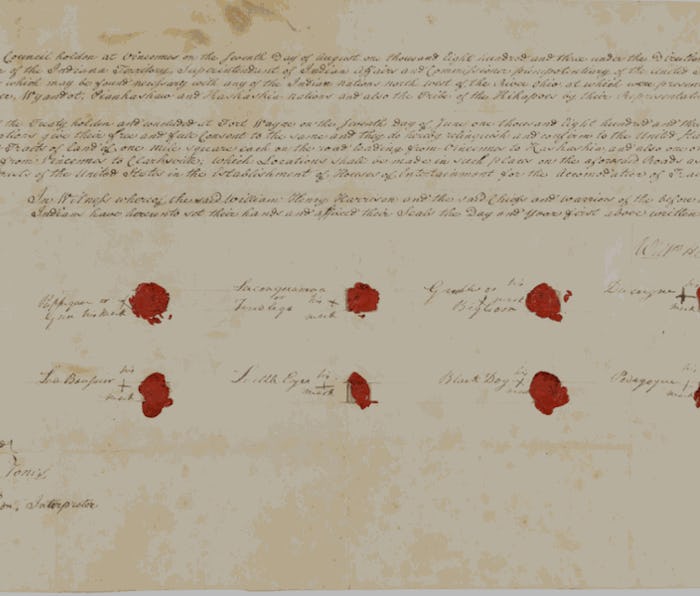 Council holden at Vincennes on the Seventh Day of August one thousand Eight hundred and three under the Direction
of the Indiana Territory, Superintendant of Indian Affairs and Commissioner plenipotentiary of the United
which may be found necessary with any of the Indian nations north west of the River Ohio at which were present
Wyandot, Piankashaw and Kaskaskia nations and also the Tribe of the Kikapoes by their Representatives
the Treaty holden and concluded at Fort Wayne on the Seventh day of June one thousand Eight hundred and three
give their free and full Consent to the same and they do hereby relinquish and confirm to the United
Tracts of Land of one mile square each on the road leading from Vincennes to Kaskaskia and also one
from Vincennes to Clarksville, which Locations shall be made in such places on the aforesaid Roads
of the United States in the Establishment of Houses of Entertainment for the Accomodation of
In Witness whereof the said William Henry Harrison and the said Chiefs and warriors of the before
Indians have hereunto set their hands and affixed their Seals the Day and Year first above written
Will
or his mark
or his mark
or his mark
Ducoigne his mark
his mark
Little Eyes his mark
Black Dog his mark
Pedagogue
Interpreter